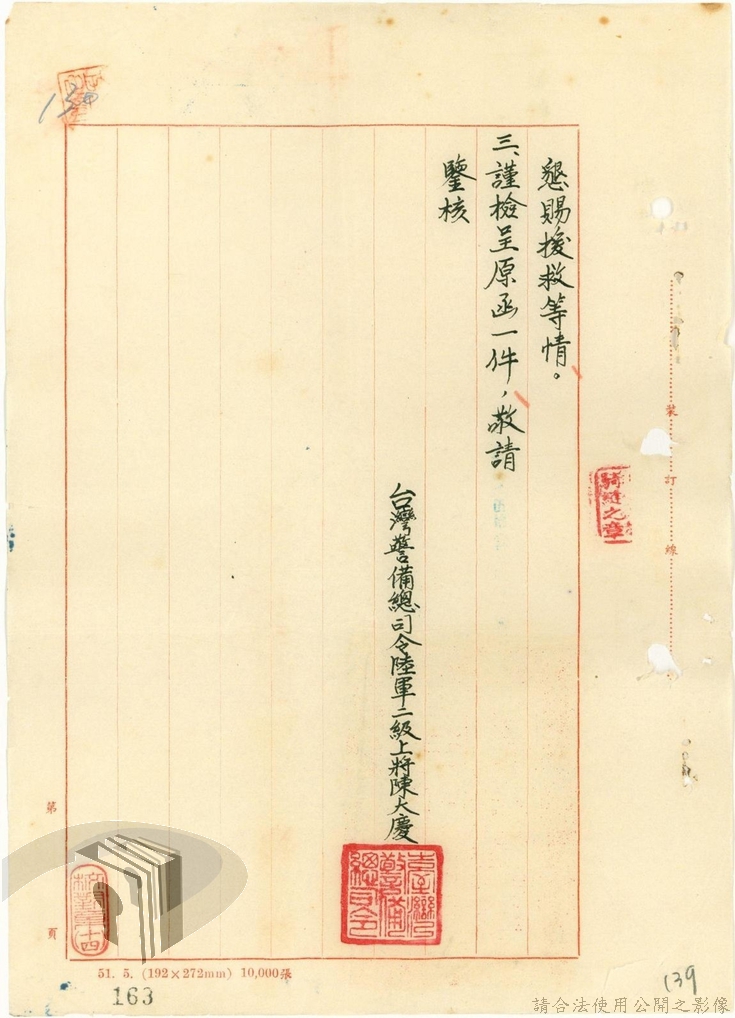 懇賜援救等情。
三、謹檢呈原函一件，敬請
鑒核
台灣警備總司令陸軍二級上將陳大慶
臺灣警備總司令
騎縫之章
裝訂線
第
頁
130
51. 5. (192×272mm) 10,000張
163
139
請合法使用公開之影像